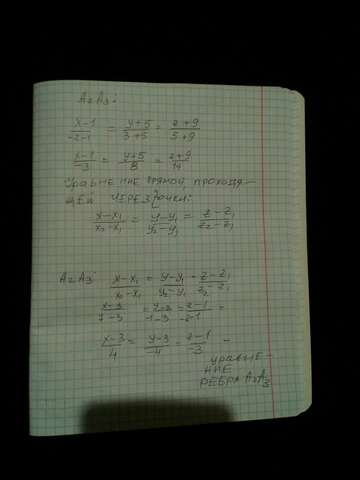 A₂A₃:
(x-1)/(-2-1) = (y+5)/(3+5) = (z+9)/(5+9)
(x-1)/(-3) = (y+5)/8 = (z+9)/14
Уравнение прямой проходя-
щей через 2 точки:
(x-x₁)/(x₂-x₁) = (y-y₁)/(y₂-y₁) = (z-z₁)/(z₂-z₁)
A₂A₃: (x-x₁)/(x₂-x₁) = (y-y₁)/(y₂-y₁) = (z-z₁)/(z₂-z₁)
(x-3)/(7-3) = (y-3)/(-1-3) = (z-1)/(-2-1) =
(x-3)/4 = (y-3)/(-4) = (z-1)/(-3) -
уравне-
ние
ребра A₂A₃